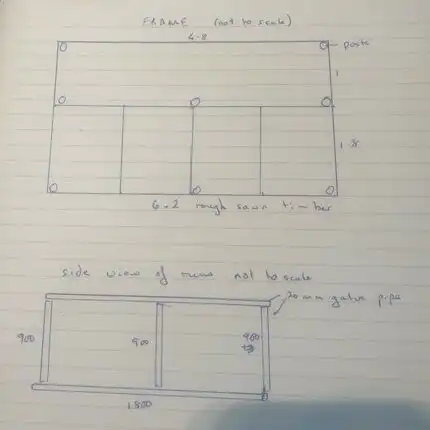 FRAME (not to scale)
4-8
posts
1
1.8
6x2 rough sawn timber
side view of not to scale
20mm galv pipe
900
900
900
1800